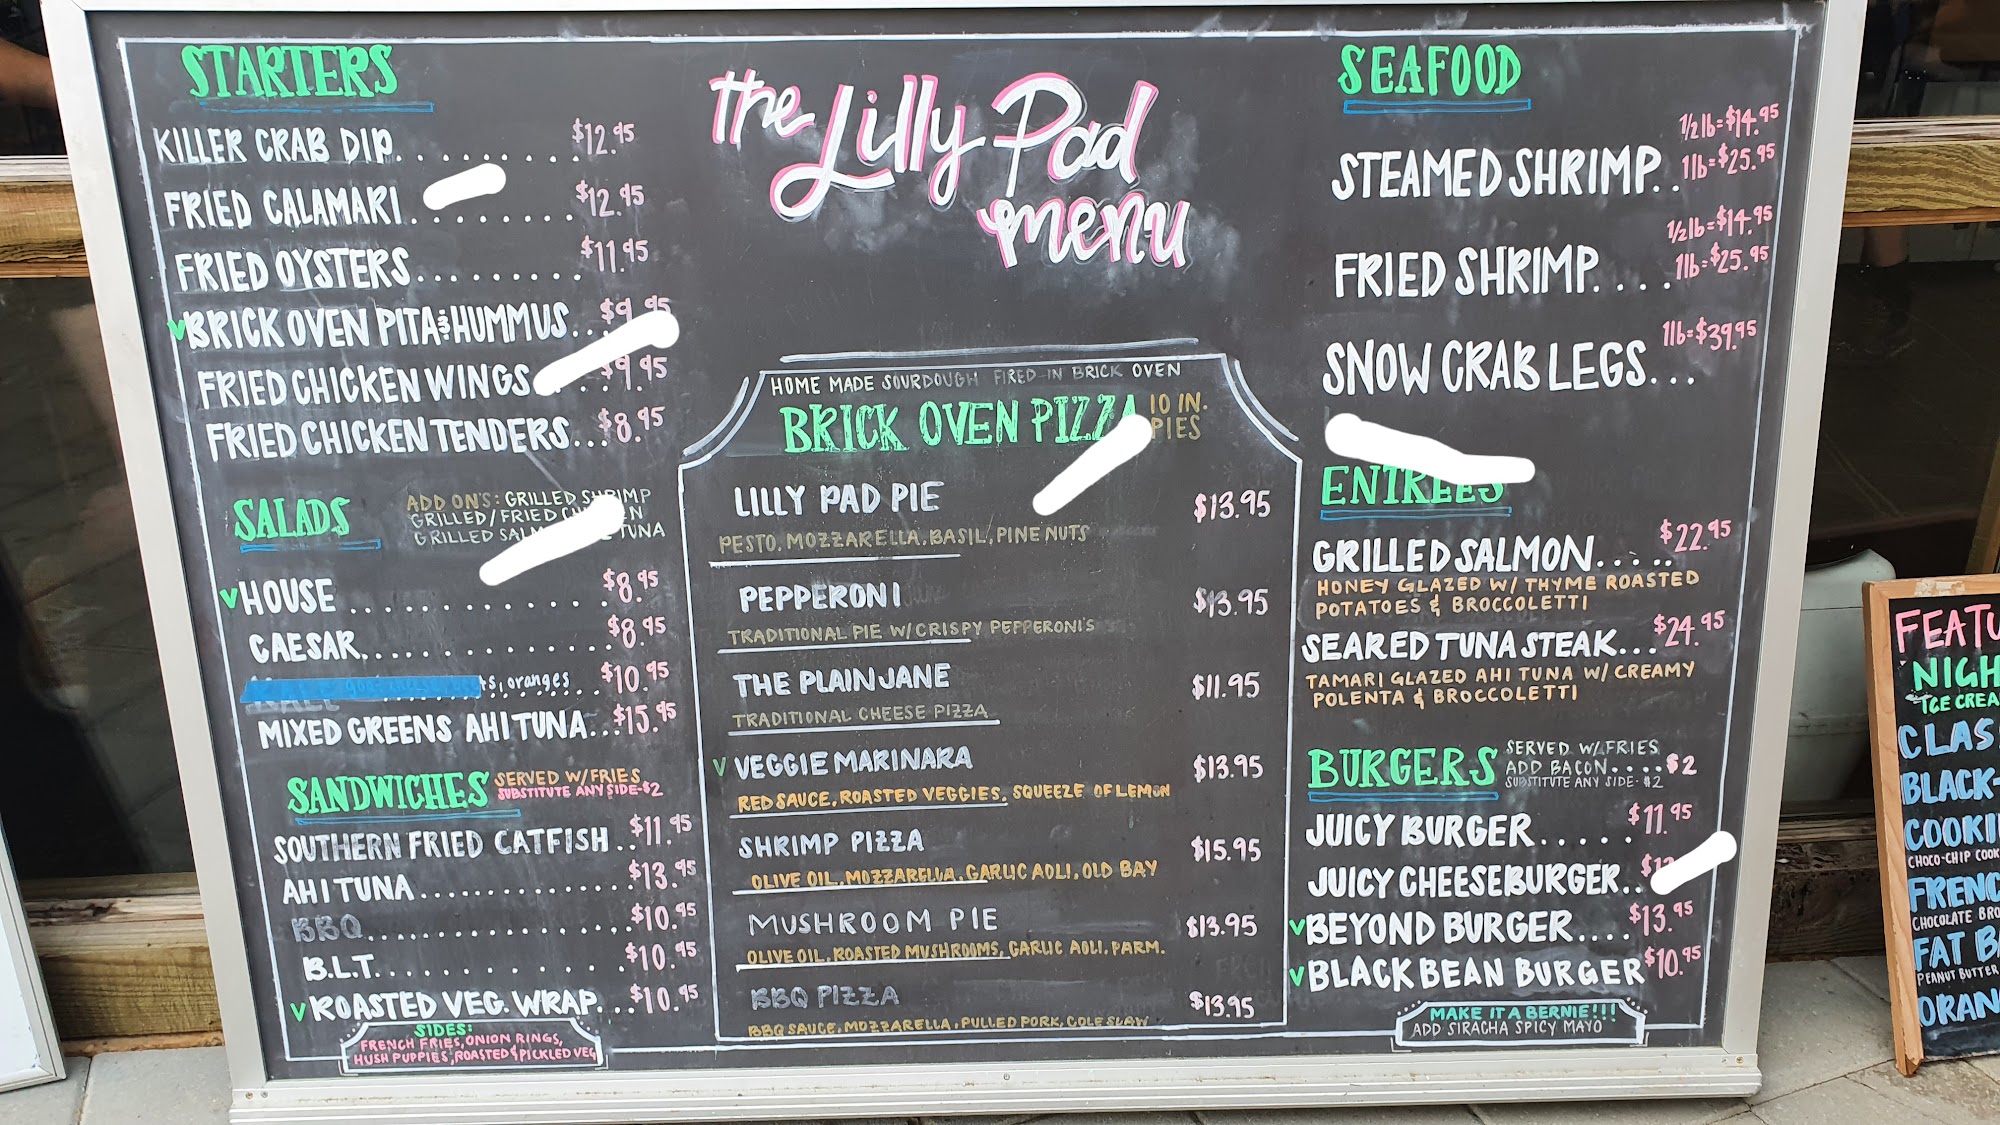 the Lilly Pad
menu
STARTERS
KILLER CRAB DIP.......... $12.95
FRIED CALAMARI.......... $12.95
FRIED OYSTERS......... $11.95
V BRICK OVEN PITA & HUMMUS... $9.95
FRIED CHICKEN WINGS $9.95
FRIED CHICKEN TENDERS... $8.95
SALADS
ADD ON'S: GRILLED SHRIMP
GRILLED/FRIED
GRILLED TUNA
V HOUSE ............. $8.95
CAESAR.............. $8.95
oranges ... $10.95
MIXED GREENS AHI TUNA... $15.95
SANDWICHES SERVED W/FRIES
SUBSTITUTE ANY SIDE-$2
SOUTHERN FRIED CATFISH .. $11.95
AHI TUNA............. $13.95
BBQ................ $10.95
B.L.T................ $10.95
V ROASTED VEG. WRAP... $10.95
SIDES:
FRENCH FRIES, ONION RINGS,
HUSH PUPPIES, ROASTED & PICKLED VEG
HOME MADE SOURDOUGH FIRED IN BRICK OVEN
BRICK OVEN PIZZA 10 IN.
PIES
LILLY PAD PIE $13.95
PESTO, MOZZARELLA, BASIL, PINE NUTS
PEPPERONI $13.95
TRADITIONAL PIE W/CRISPY PEPPERONI'S
THE PLAIN JANE $11.95
TRADITIONAL CHEESE PIZZA
V VEGGIE MARINARA $13.95
RED SAUCE, ROASTED VEGGIES, SQUEEZE OF LEMON
SHRIMP PIZZA $15.95
OLIVE OIL, MOZZARELLA, GARLIC AOLI, OLD BAY
MUSHROOM PIE $13.95
OLIVE OIL, ROASTED MUSHROOMS, GARLIC AOLI, PARM.
BBQ PIZZA $13.95
BBQ SAUCE, MOZZARELLA, PULLED PORK, COLE SLAW
SEAFOOD
1/2 lb=$14.95
STEAMED SHRIMP.. 1lb=$25.95
1/2 lb=$14.95
FRIED SHRIMP..... 1lb=$25.95
1lb=$39.95
SNOW CRAB LEGS...
ENTREES
GRILLED SALMON..... $22.95
HONEY GLAZED W/ THYME ROASTED
POTATOES & BROCCOLETTI
SEARED TUNA STEAK... $24.95
TAMARI GLAZED AHI TUNA W/ CREAMY
POLENTA & BROCCOLETTI
BURGERS SERVED W/FRIES
ADD BACON....$2
SUBSTITUTE ANY SIDE-$2
JUICY BURGER...... $11.95
JUICY CHEESEBURGER..
V BEYOND BURGER.... $13.95
V BLACK BEAN BURGER $10.95
MAKE IT A BERNIE!!!
ADD SIRACHA SPICY MAYO
FEATU
NIGH
ICE CREA
CLAS
BLACK-
COOKI
CHOCO-CHIP COOK
FRENC
CHOCOLATE BRO
FAT B
PEANUT BUTTER
ORAN